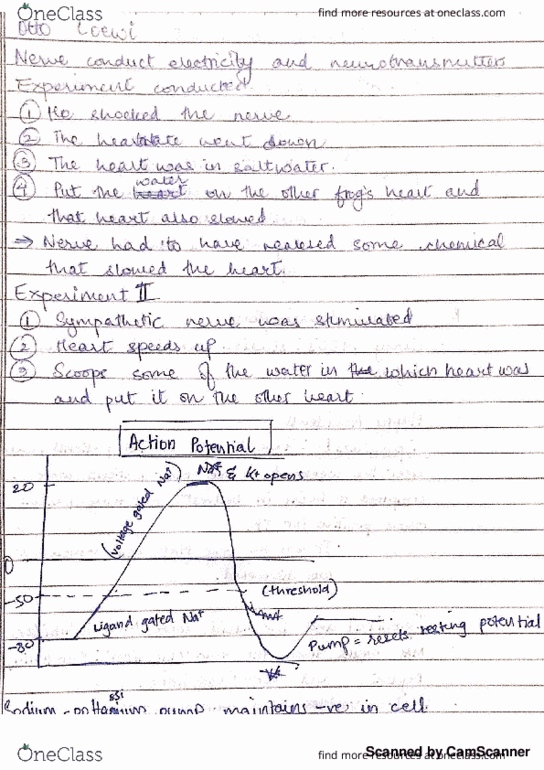 OneClass
find more resources at oneclass.com
Otto Loewi
Nerve conduct electricity and neurotransmitters
Experiment conducted
① He shocked the nerve
② The heartrate went down
③ The heart was in saltwater.
④ Put the water on the other frog's heart and
that heart also slowed
→ Nerve had to have realesed some chemical
that slowed the heart.
Experiment II
① Sympathetic nerve was stimulated
② Heart speeds up
③ Scoops some of the water in which heart was
and put it on the other heart.
Action Potential
& K+ opens
20
(Voltage gated Na+)
0
-50
(threshold)
Ligand gated Na+
-80
Pump = resets resting potential
ssi
Sodium - pump maintains -ve in cell.
OneClass
find more resources at oneclass.com
Scanned by CamScanner